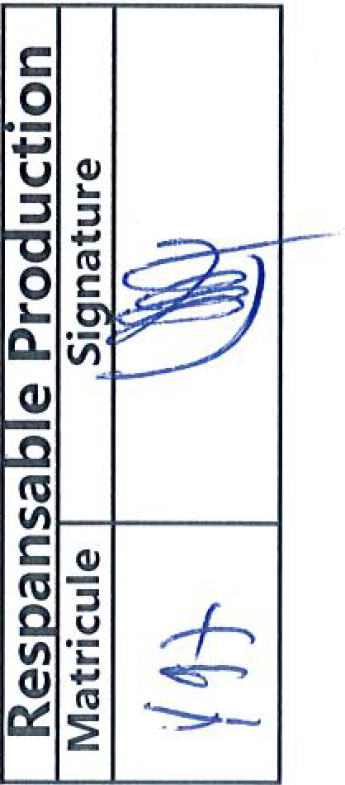 Respansable Production
Matricule Signature
497